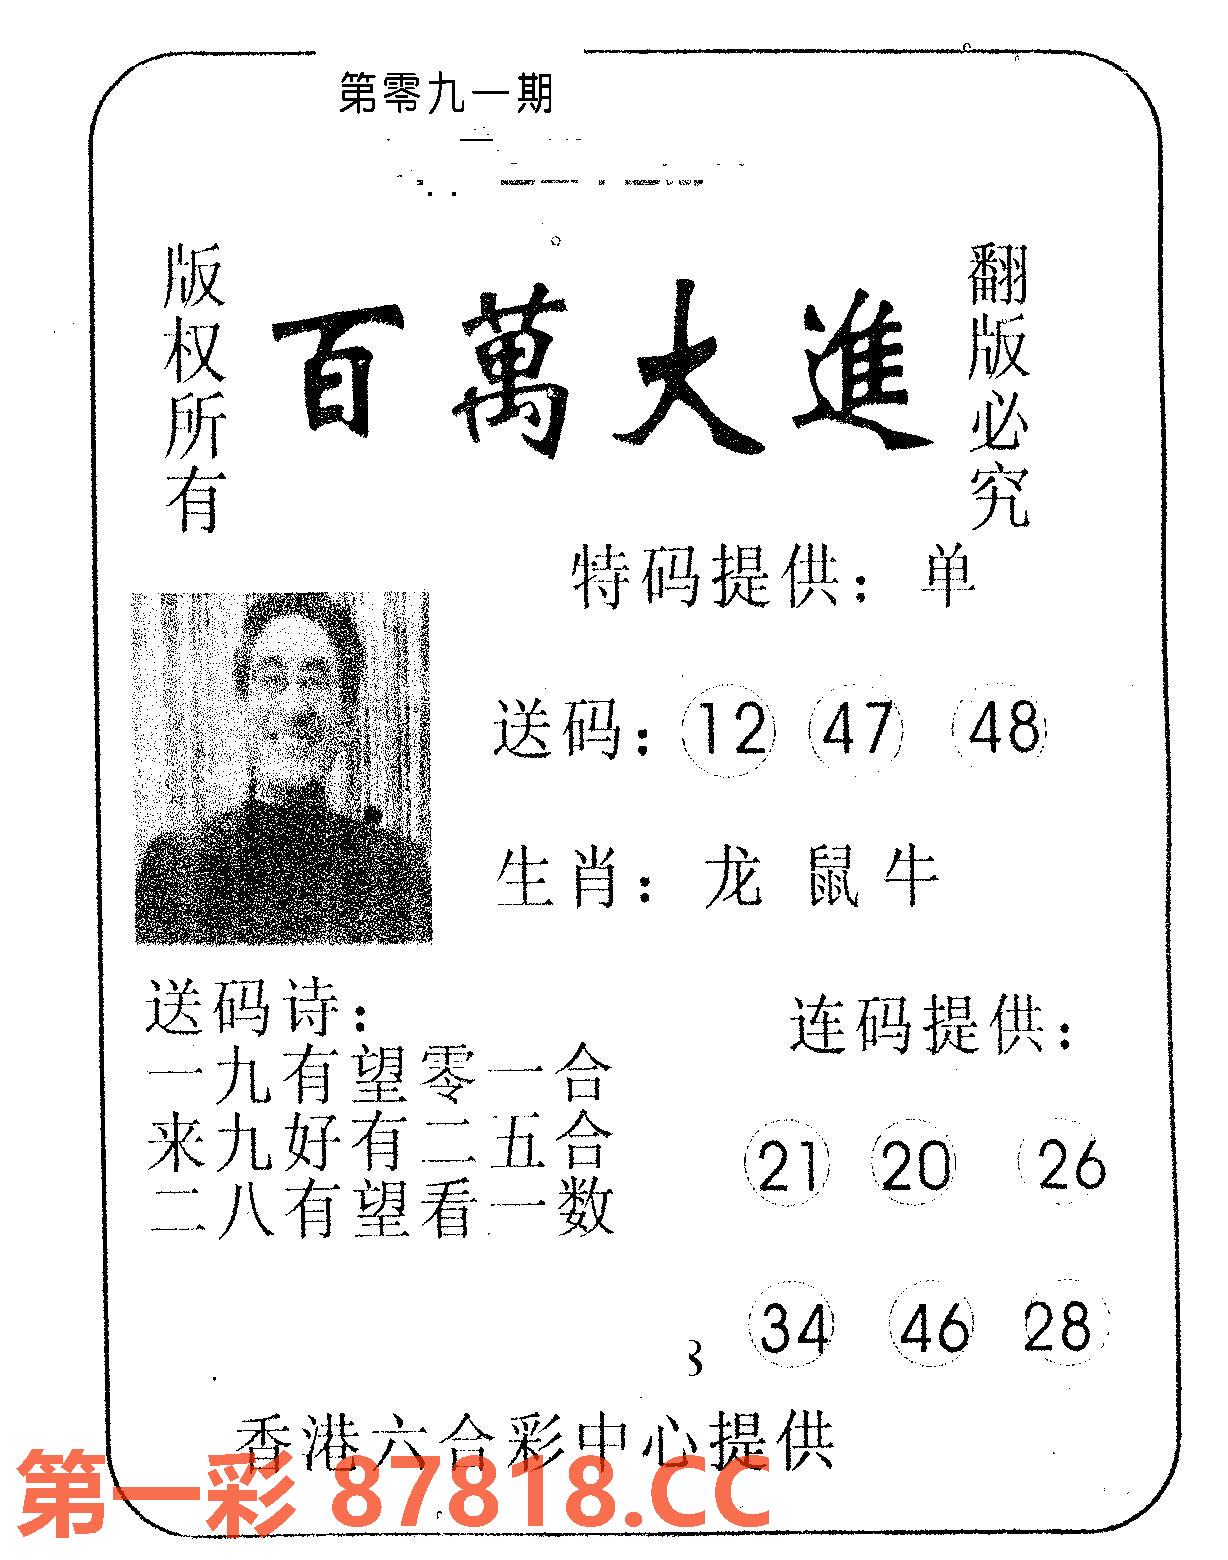 第零九一期
版权所有
百萬大進
翻版必究
特码提供：单
送码：12 47 48
生肖：龙 鼠 牛
送码诗：
一九有望零一合
来九好有二五合
二八有望看一数
连码提供：
21 20 26
34 46 28
香港六合彩中心提供
第一彩 87818.CC